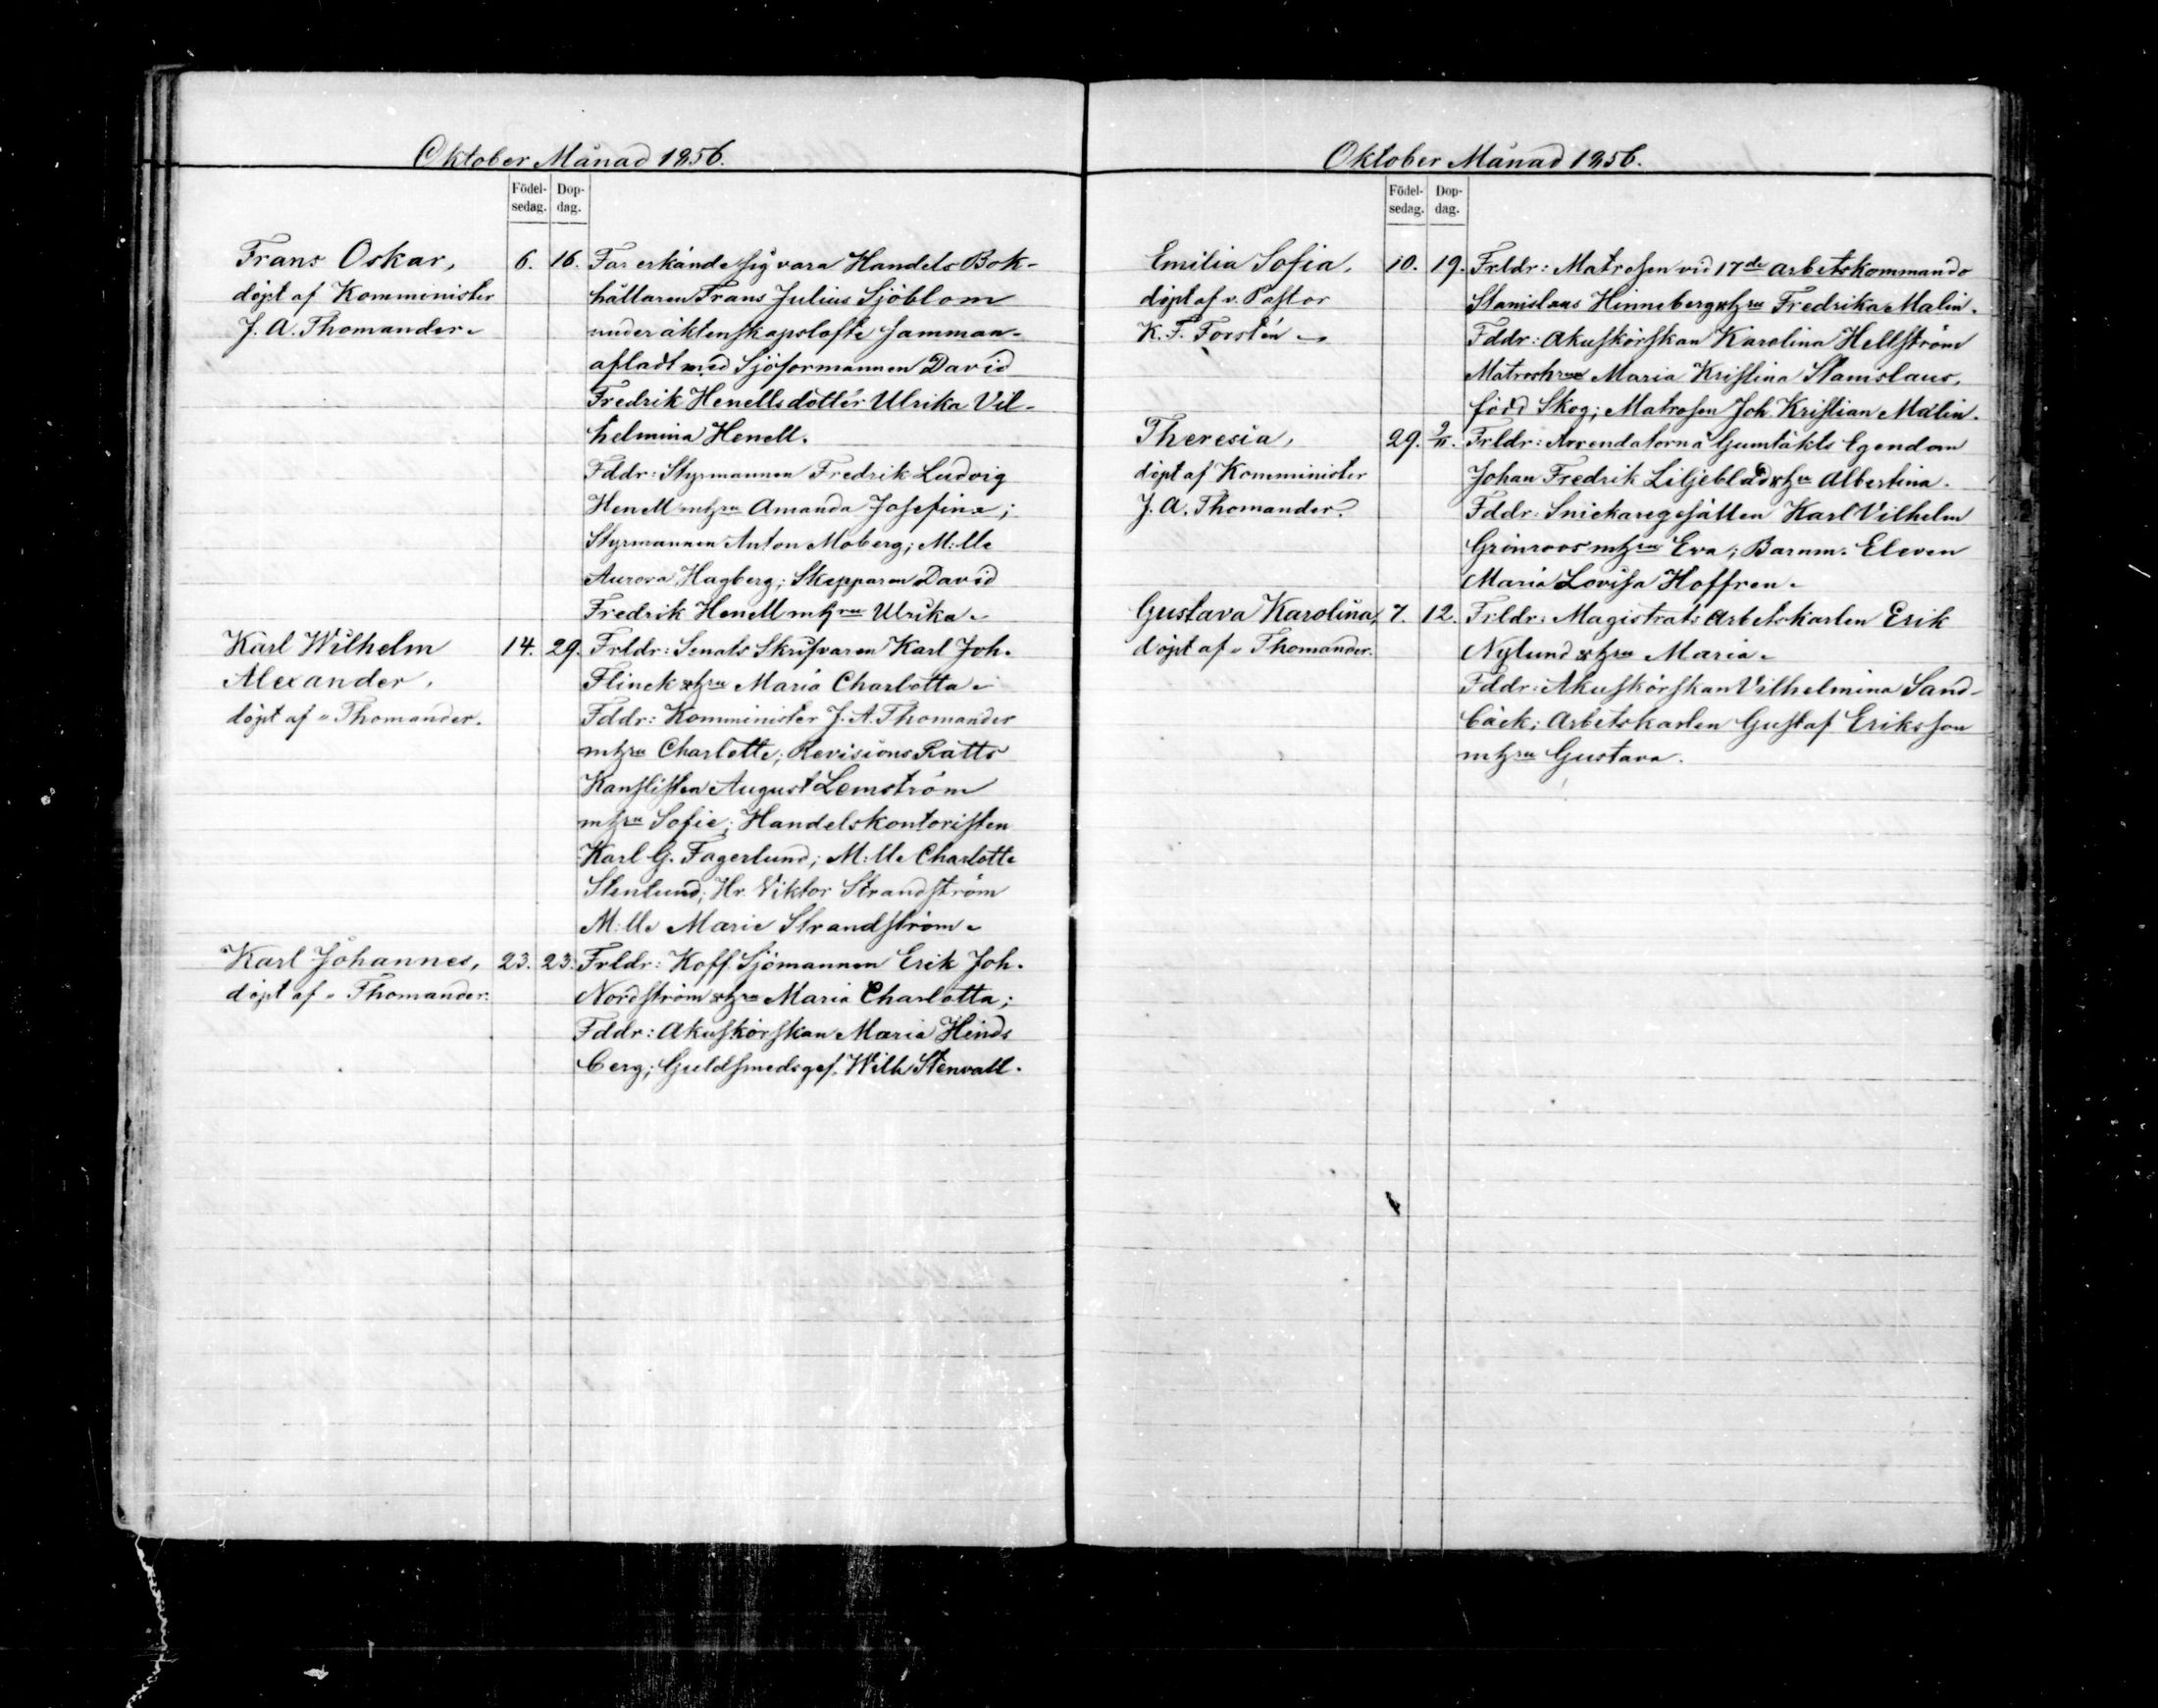 Oktober Månad 1856.
Födel-
sedag.
Dop-
dag.
Frans Oskar,
döpt af Komminister
J. A. Thomander.
6.
16.
Far erkände sig vara Handels Bok-
hållaren Frans Julius Sjöblom
under äktenskapslöfte samman-
afladt med Sjöformannen David
Fredrik Henells dotter Ulrika Vil-
helmina Henell.
Fddr: Styrmannen Fredrik Ludvig
Henell mhru Amanda Josefina;
Styrmannen Anton Moberg; M:lle
Aurora Hagberg; Skepparen David
Fredrik Henell mhru Ulrika.
Karl Wilhelm
Alexander,
döpt af " Thomander.
14.
29.
Frldr: Senats Skrifvaren Karl Joh.
Flinck &hru Maria Charlotta.
Fddr: Komminister J. A. Thomander
mhru Charlotte; Revisions Rätts
Kanslisten August Lemström
mhru Sofie; Handelskontoristen
Karl G. Fagerlund; M:lle Charlotte
Stenlund; Hr. Viktor Strandström
M:lle Marie Strandström.
Karl Johannes,
döpt af " Thomander.
23.
23.
Frldr: Koff. Sjömannen Erik Joh.
Nordström &hru Maria Charlotta;
Fddr: Akuskörskan Maria Hinds
berg; Guldsmedsges. Wilh Stenvall.
Oktober Månad 1856.
Födel-
sedag.
Dop-
dag.
Emilia Sofia,
döpt af v. Pastor
K. F. Forstén
10.
19.
Frldr: Matrosen vid 17de arbetskommando
Stanislaus Hinneberg &hru Fredrika Malin.
Fddr: Akuskörskan Karolina Hellström
Matroshru Maria Kristina Stanislaus,
född Skog; Matrosen Joh. Kristian Malin.
Theresia,
döpt af Komminister
J. A. Thomander.
29.
9/11.
Frldr: Arrendatorn å Gumtäkts Egendom
Johan Fredrik Liljeblad &hru Albertina.
Fddr: Snickaregesällen Karl Vilhelm
Grönroos mhru Eva; Barnm. Eleven
Maria Lovisa Hoffren.
Gustava Karolina,
döpt af " Thomander.
7.
12.
Frldr: Magistrats Arbetskarlen Erik
Nylund &hru Maria.
Fddr: Akuskörskan Vilhelmina Sand-
bäck; Arbetskarlen Gustaf Eriksson
mhru Gustava.